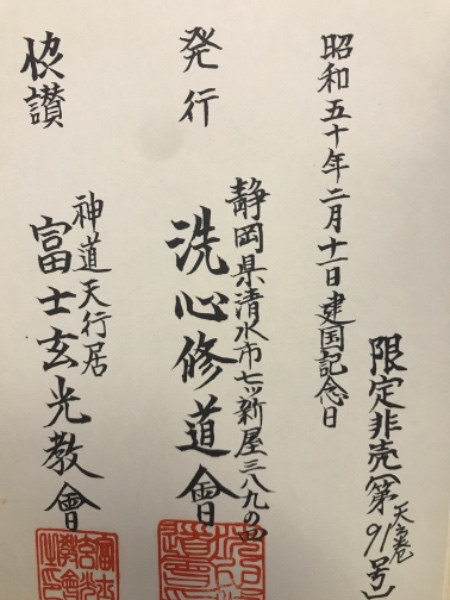 昭和五十年二月十一日建国記念日
限定非売(第天之巻91号)
発行
静岡県清水市七ツ新屋三八九の四
洗心修道會
協讃
神道天行居
富士玄光教會